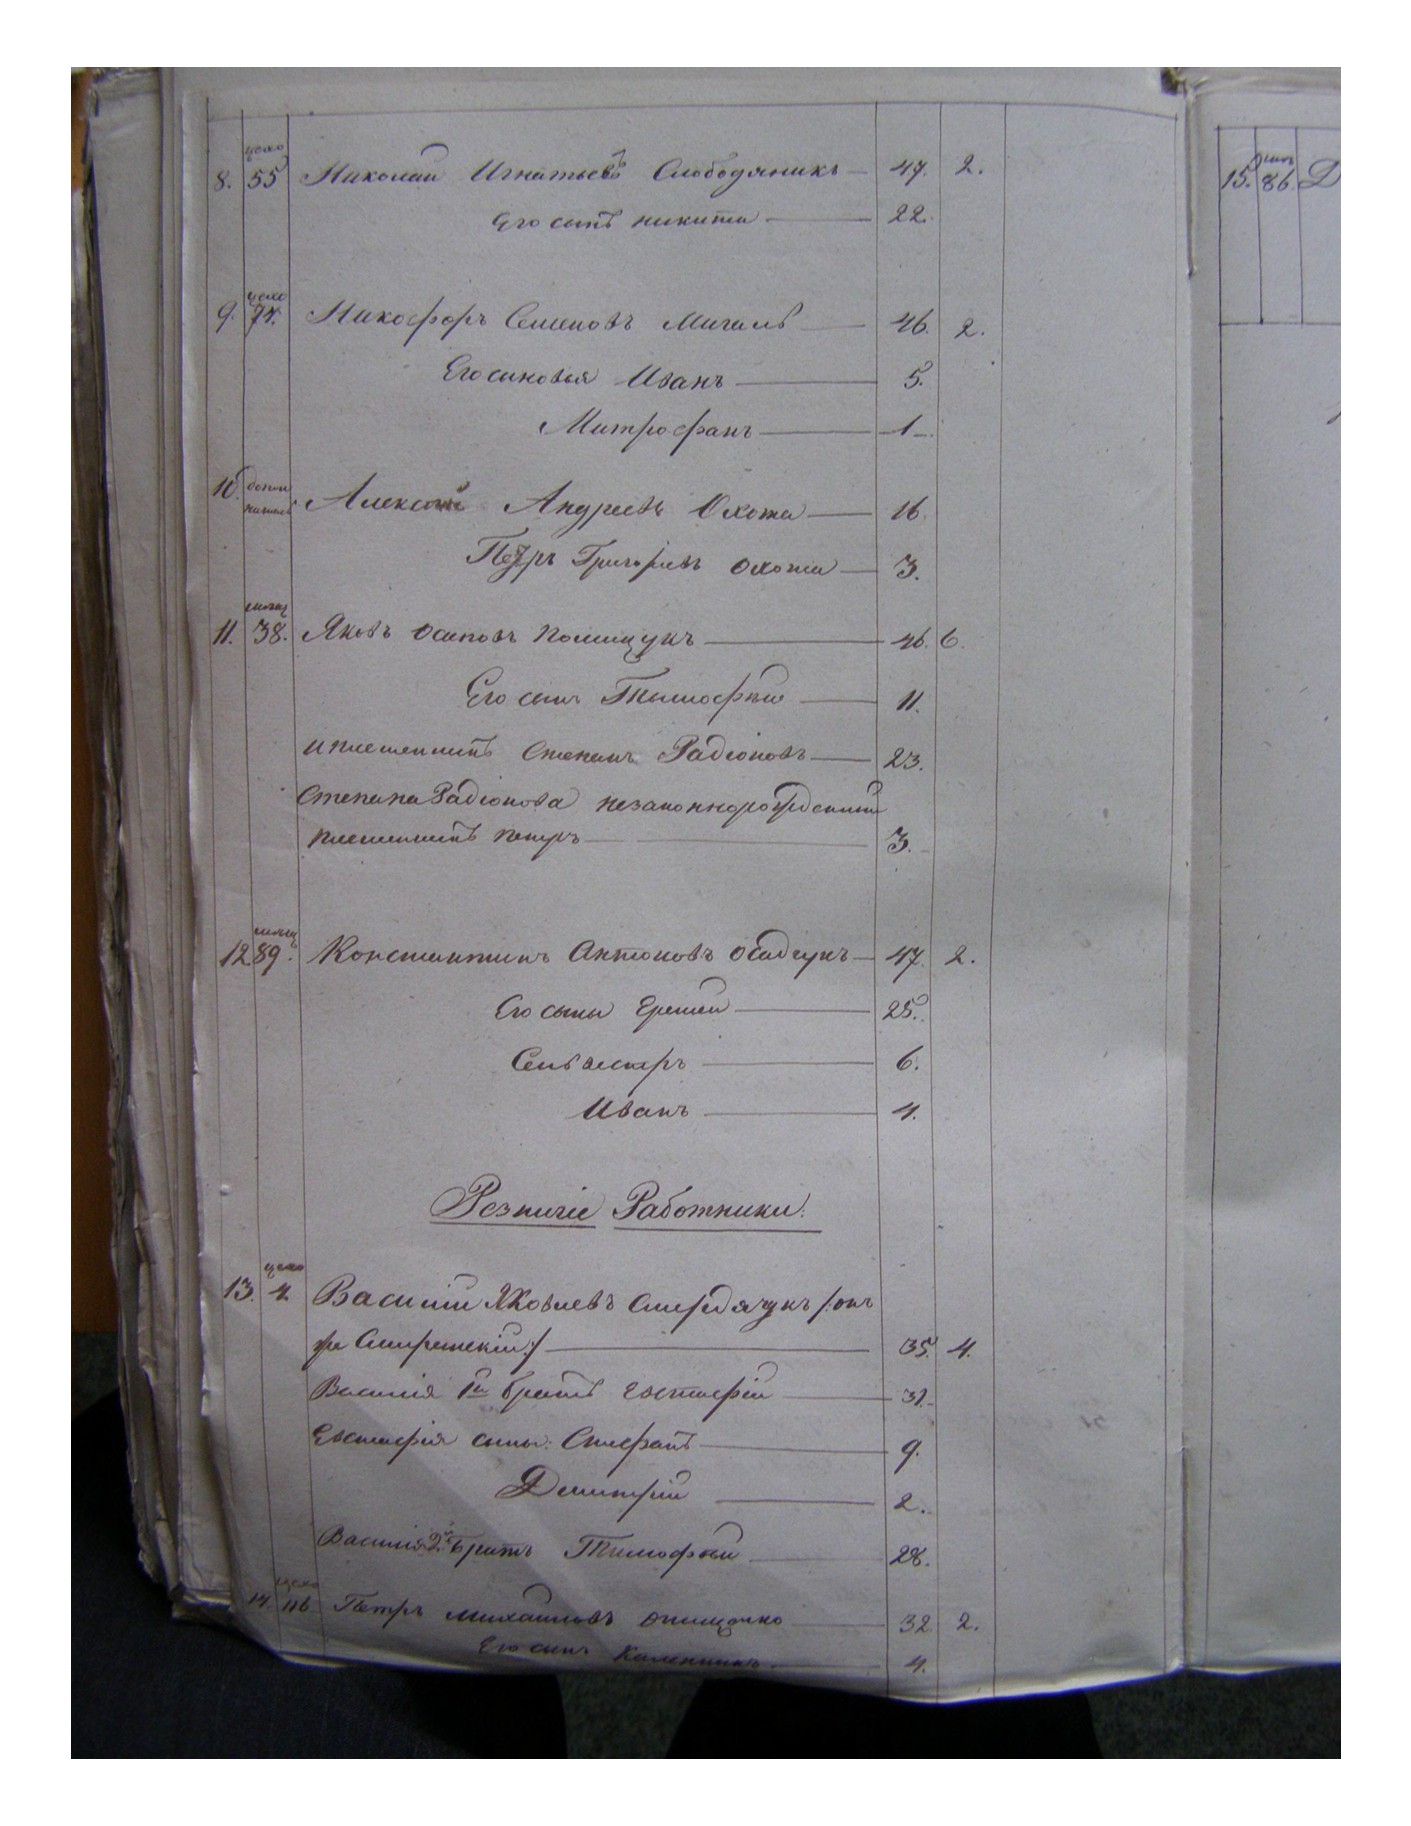 8. 55 Николай Игнатьевъ Слободяникъ 47. 2.
Его сынъ Никита 22.
9. 74. Никофоръ Семеновъ Мигаль 46. 2.
Его синовья Иванъ 5.
Митрофанъ 1
10. Алексей Андреевъ Охота 16.
Петръ Григорьевъ Охота 3.
11. 38. Яковъ Осиповъ Полищукъ 46. 6.
Его сынъ Тимофѣй 11.
племенникъ Степанъ Радіоновъ 23.
Степана Радіонова незаконнорожденний
племенникъ Петръ 3.
12. 89. Константинъ Антоновъ Осадчукъ 47. 2.
Его сыны Еремей 25.
Сельвестръ 6.
Иванъ 4.
Резничіе Работники.
13. 4. Василій Яковлевъ /:онъ
же 35. 4.
Василія 1й братъ Евстафій 31.
Евстафія сыны: Стефанъ 9.
Димитрій 2.
Василія 2й братъ Тимофѣй 28.
14. 116 Петръ Михайловъ 32. 2.
Его сынъ Калениикъ 4.
15. 86. Д